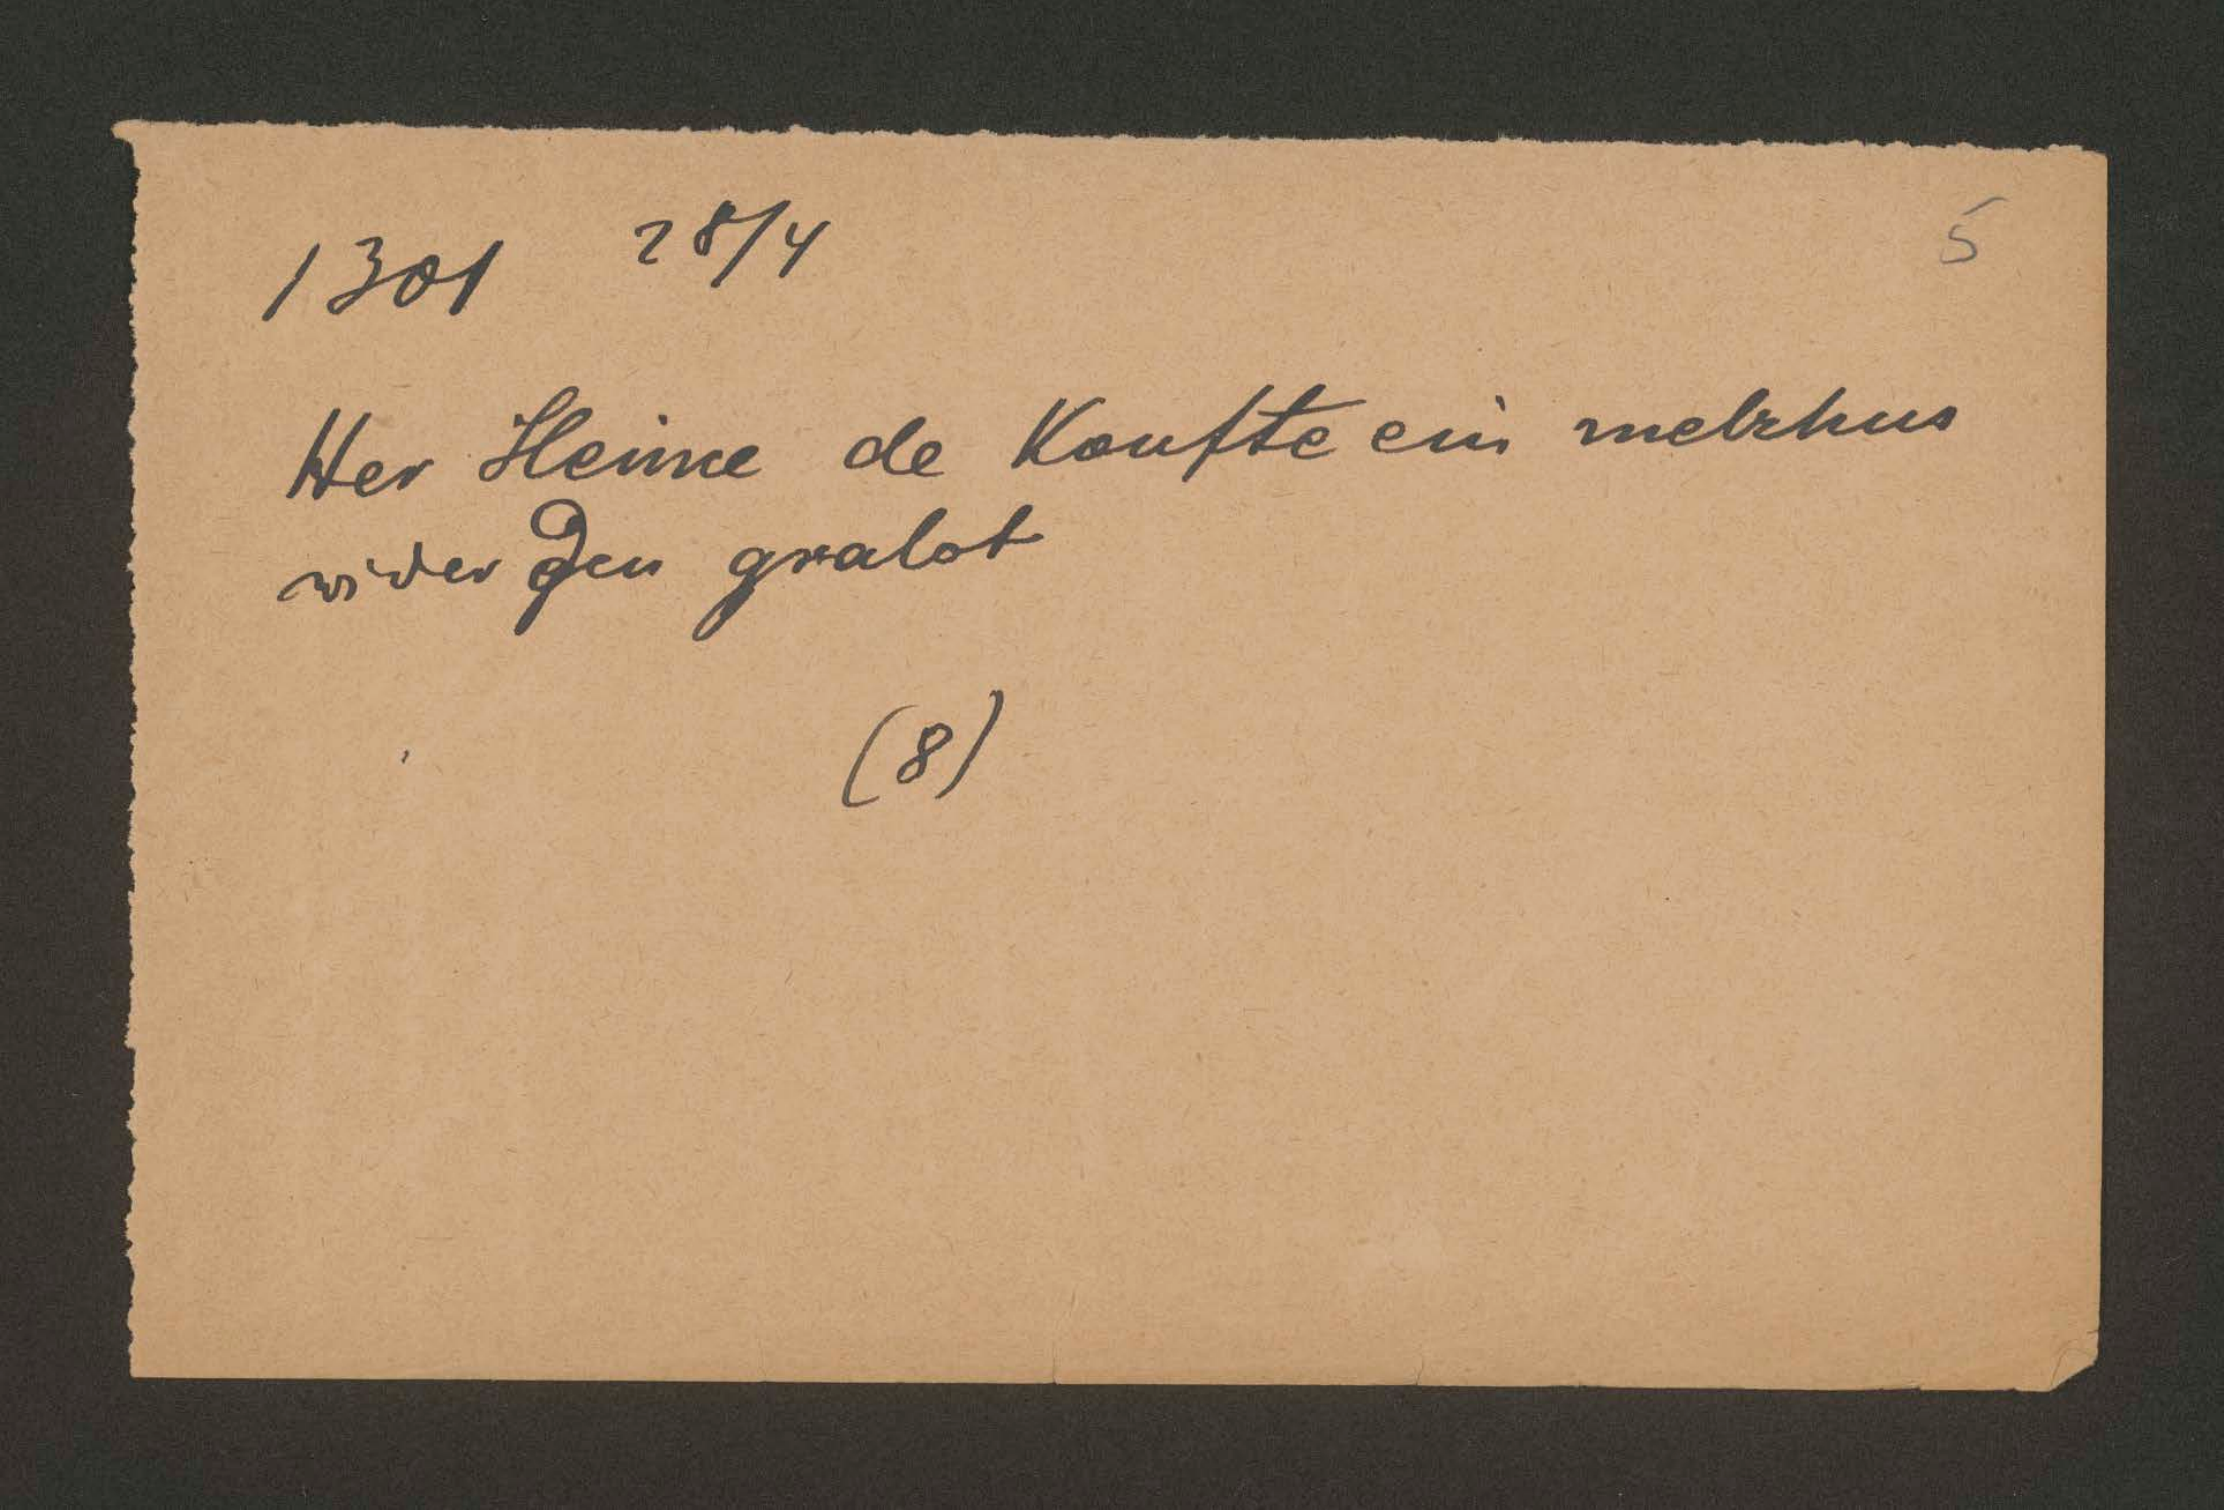 1301 28/4 5
Her Heime de Koufte ein melzhus
wider den gralot
(8)